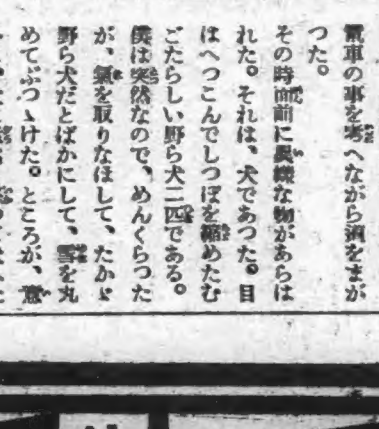 電車の事を考へながら酒をまが
つた。
その時前面に異様な物があらは
れた。それは、犬であつた。目
はへつこんでしつぽを縮めたむ
ごたらしい野ら犬二匹である。
僕は突然なので、めんくらつた
が、氣を取りなほして、たかゞ
野ら犬だとばかにして、雪を丸
めてぶつゝけた。ところが、意